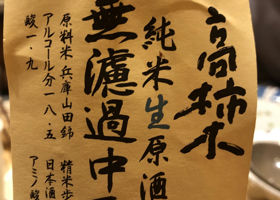 高柿木
純米生原酒
無濾過中
原料米 兵庫山田錦 精米歩
アルコール分 一八・五 日本酒
酸一・九 アミノ酸